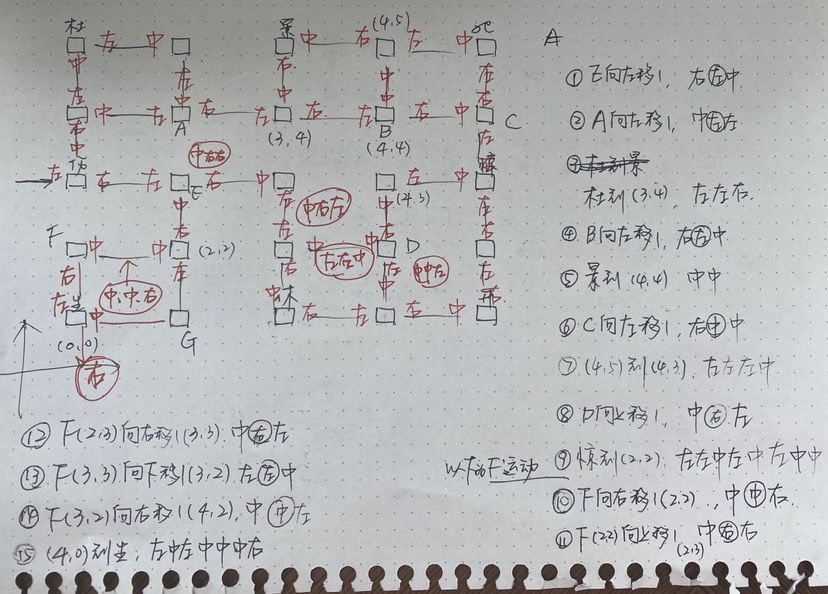 杜 左 中 景 中 右 (4,5) 左 中 死
中 左 右 中 左
左 中 中 中 右
中 左 A 右 左 右 左 B 右 中 C
右 (3,4) (4,4) 左
中 中右右
左 右 左 E 右 中 左 中
中 左 中右左 (4,3) 中 右
F 左 左
中 右 (2,2) 右 中 左左中 D
右 左 左 中中左 左
左 生 中,中,右 中 休 中 开 右
中 右 左 右 中
(0,0) G
右
A
① E向左移1, 右左中
② A向左移1, 中左左
③ 杜到景
杜到(3,4), 左左右.
④ B向左移1, 右左中
⑤ 景到(4,4) 中中
⑥ C向左移1, 右中中
⑦ (4,5)到(4,3), 左左左中
⑧ D向上移1, 中右左
以下为F运动
⑨ 惊到(2,2). 左左中左中左中中
⑩ F向右移1(2,2), 中中右
⑪ F(2,2)向上移1, 中右右
(2,3)
⑫ F(2,3)向右移1(3,3). 中右左
⑬ F(3,3)向下移1(3,2). 左左中
⑭ F(3,2)向右移1(4,2). 中中左
⑮ (4,0)到生, 左中左中中中右